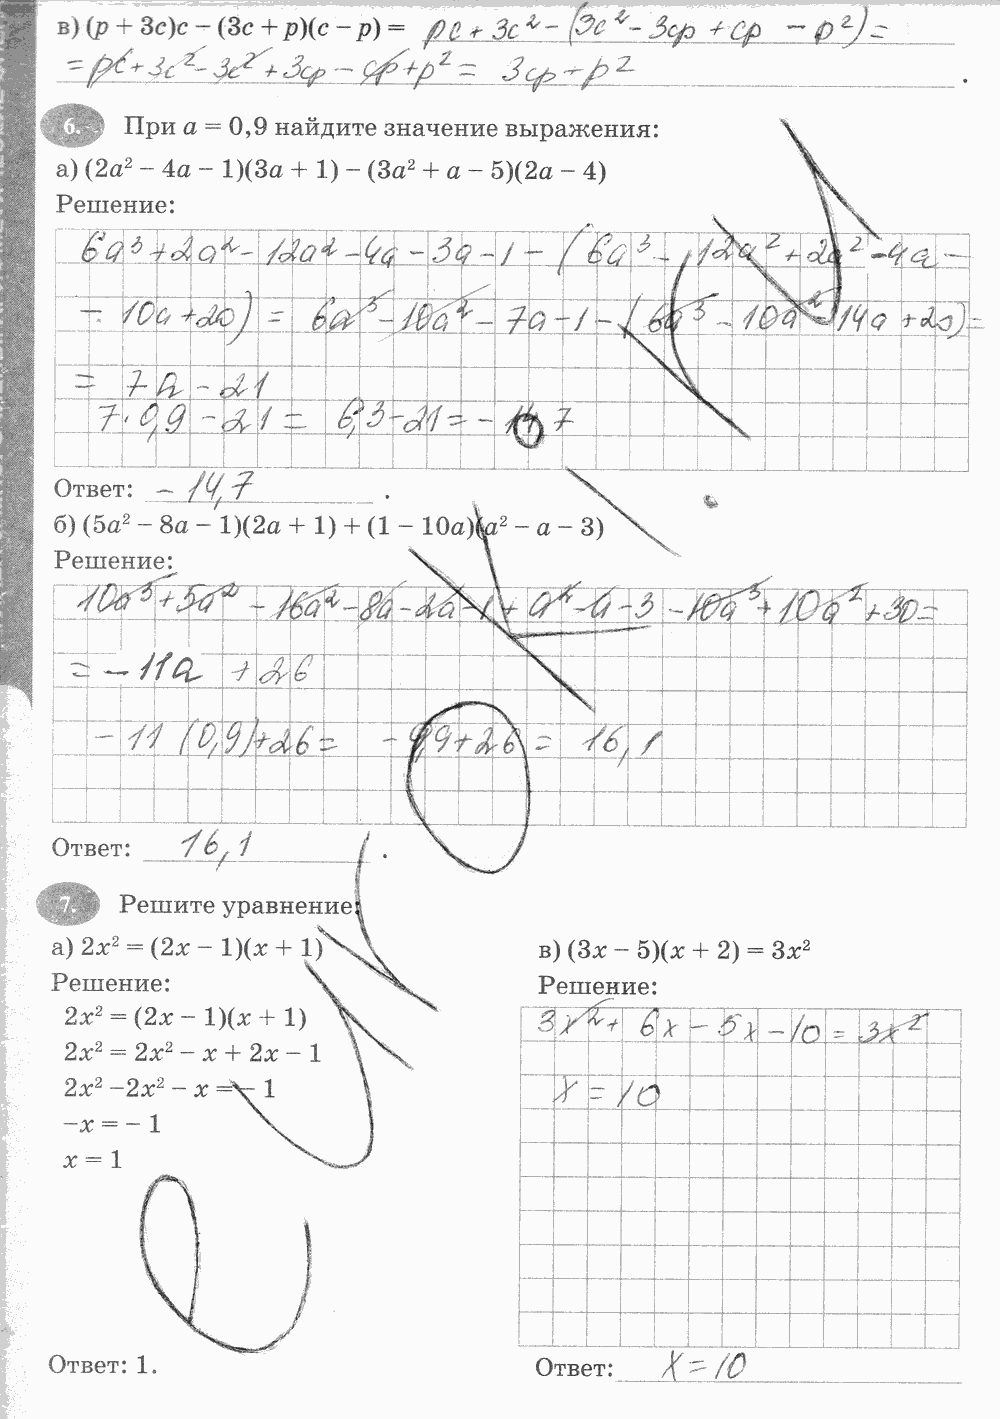 в) (p + 3c)c – (3c + p)(c – p) = pc + 3c² – (3c² – 3cp + cp – p²) =
= pc + 3c² – 3c² + 3cp – cp + p² = 3cp + p² .
6. При a = 0,9 найдите значение выражения:
а) (2a² – 4a – 1)(3a + 1) – (3a² + a – 5)(2a – 4)
Решение:
6a³ + 2a² – 12a² – 4a – 3a – 1 – (6a³ – 12a² + 2a² – 4a –
– 10a + 20) = 6a³ – 10a² – 7a – 1 – (6a³ – 10a² – 14a + 20) =
= 7a – 21
7 · 0,9 – 21 = 6,3 – 21 = – 14,7
Ответ: – 14,7 .
б) (5a² – 8a – 1)(2a + 1) + (1 – 10a)(a² – a – 3)
Решение:
10a³ + 5a² – 16a² – 8a – 2a – 1 + a² – a – 3 – 10a³ + 10a² + 30 =
= – 11a + 26
– 11 (0,9) + 26 = – 9,9 + 26 = 16,1
Ответ: 16,1 .
7. Решите уравнение:
а) 2x² = (2x – 1)(x + 1)
Решение:
2x² = (2x – 1)(x + 1)
2x² = 2x² – x + 2x – 1
2x² –2x² – x = – 1
–x = – 1
x = 1
Ответ: 1.
в) (3x – 5)(x + 2) = 3x²
Решение:
3x² + 6x – 5x – 10 = 3x²
x = 10
Ответ: x = 10